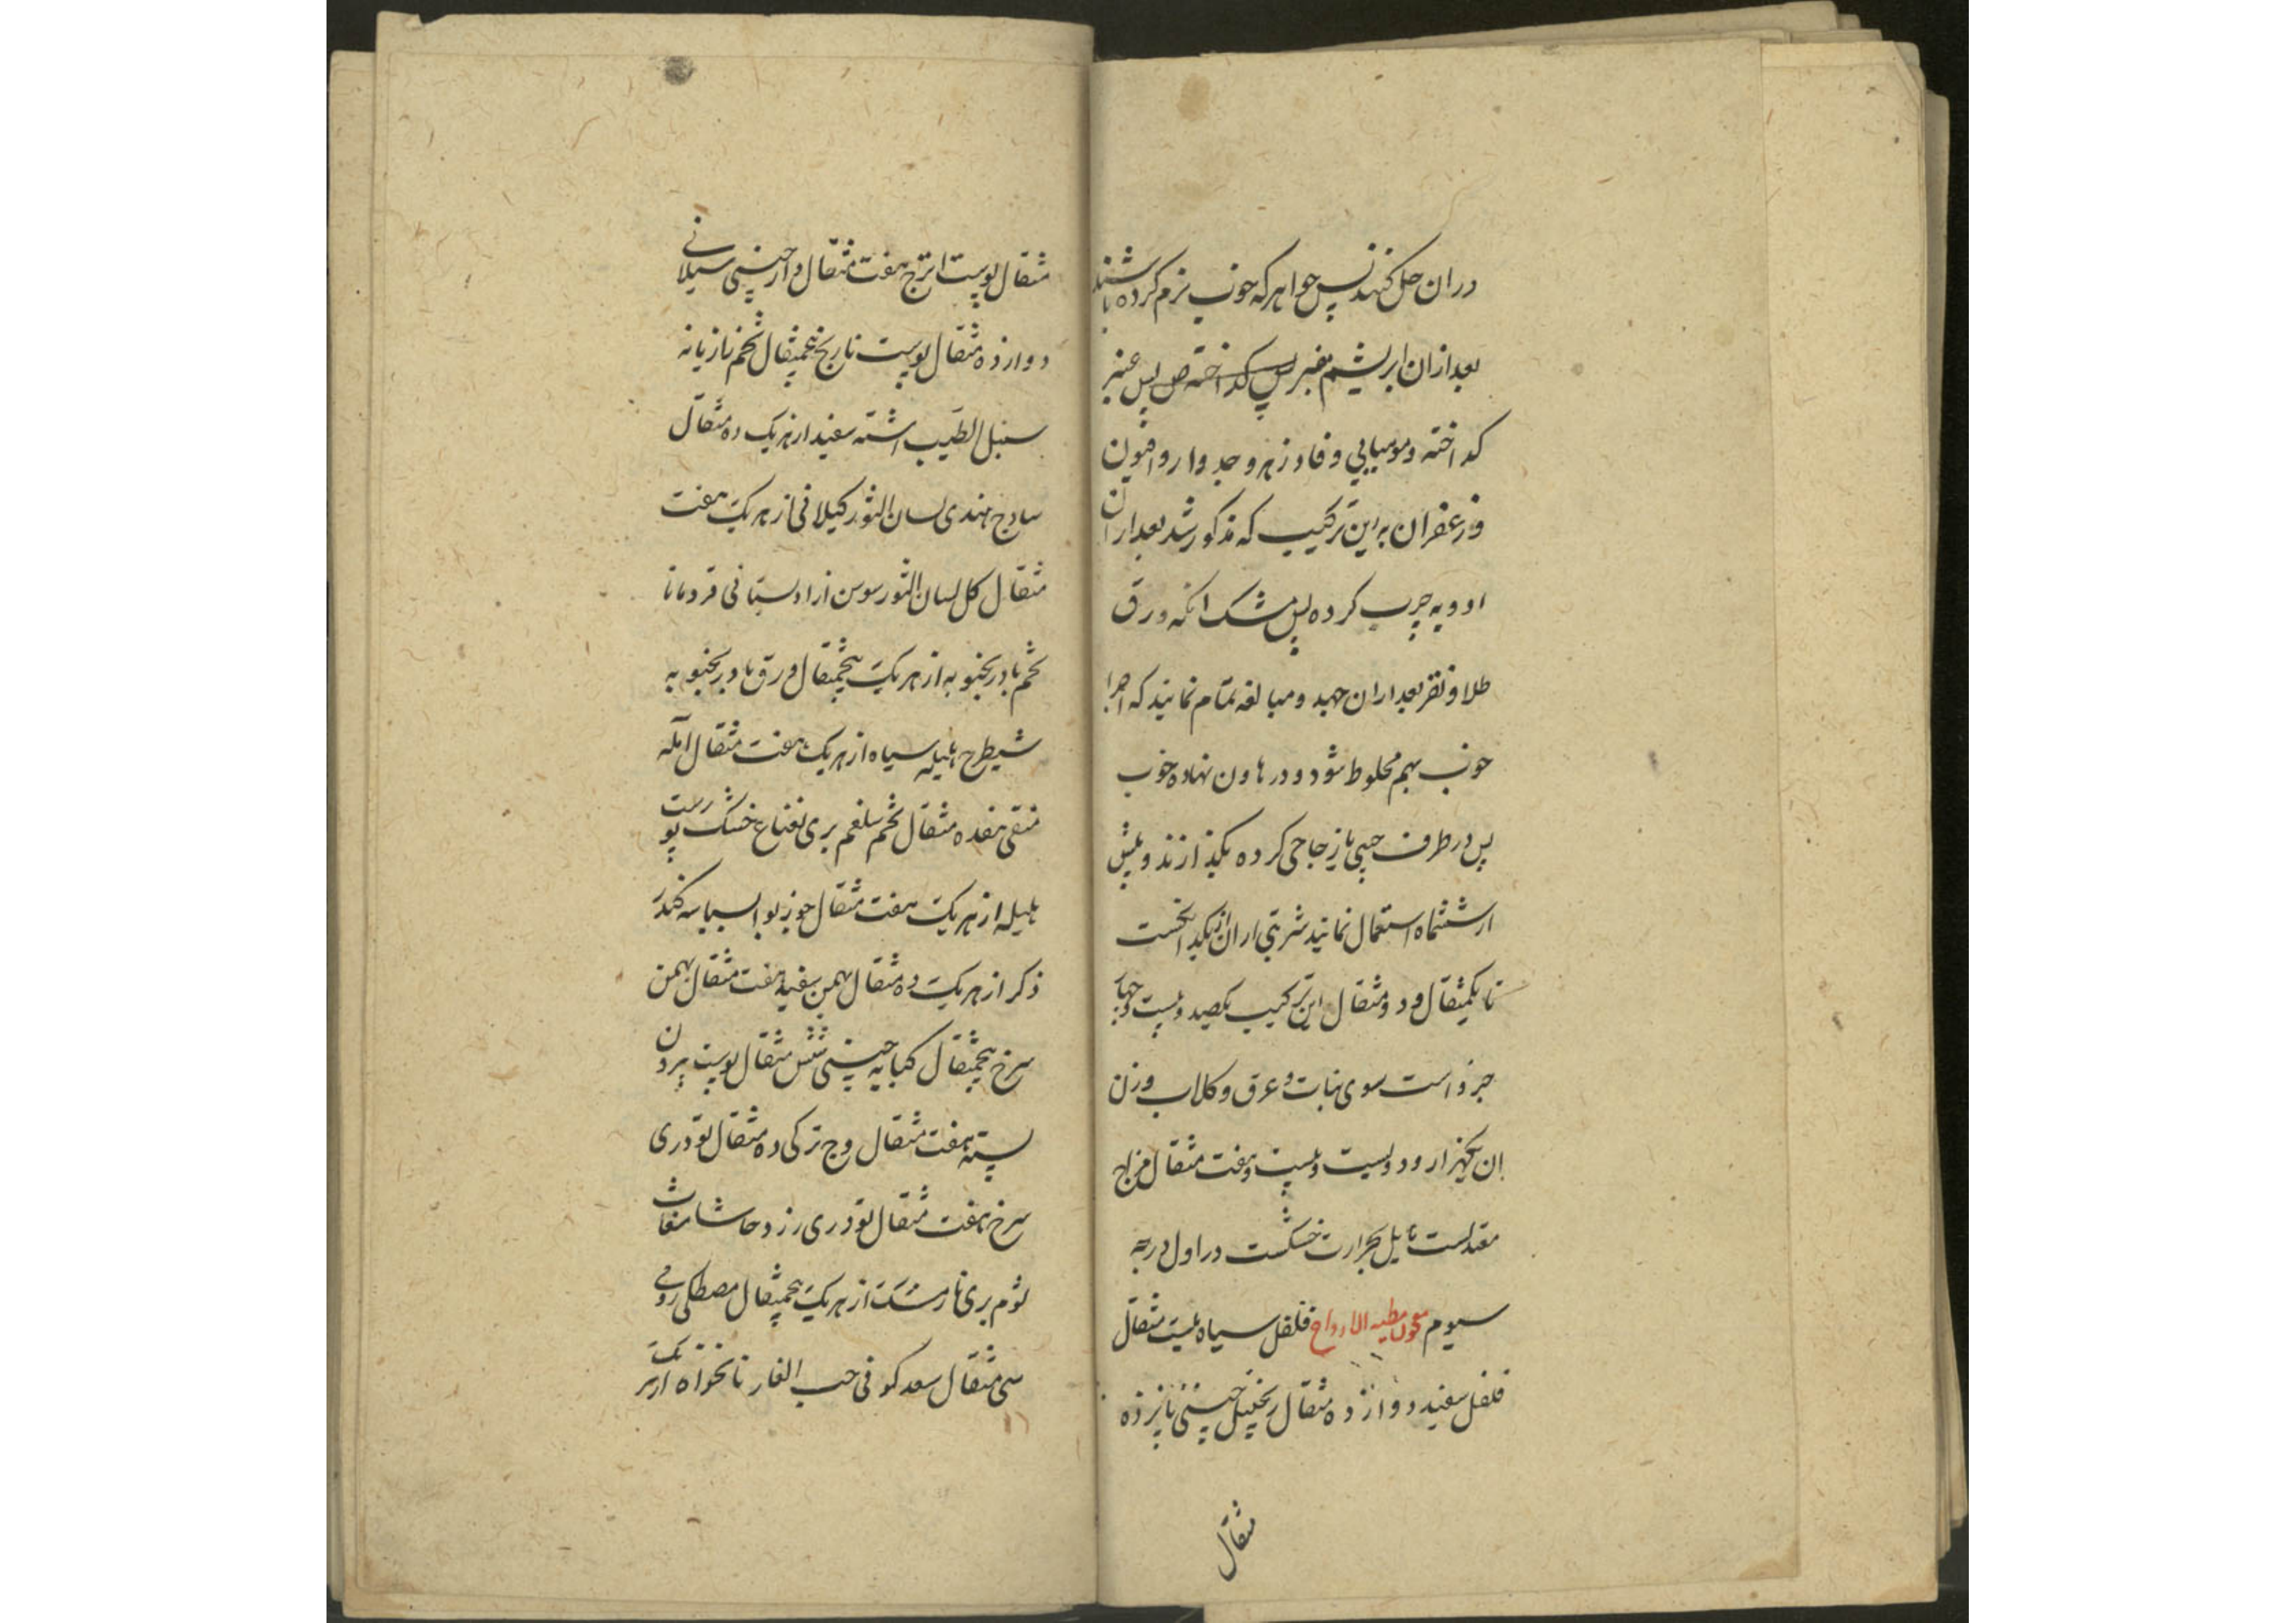 دران حل کنند پس جواهر که خوب نرم کرده باشند
بعد ازان ابریشم مقبر پس کداخته ص پس عنبر
کداخته و مومیایی و فادزهر و جدوار و افیون
و زعفران به این ترکیب که مذکور شد بعد ازان
ادویه چرب کرده پس مشک انکه ورق
طلا و نقر بعد ازان جهد و مبالغه تمام نمایند که اجزا
خوب بهم مخلوط شود و در هاون نهاده خوب
پس در ظرف چینی یا زجاجی کرده بکذارند و پیش
از ششماه استعمال نمایند شربتی ازان از یکدانخست
تا یکمثقال و دو مثقال این ترکیب یکصد و بیست و چهار
جزو است سوی نبات و عرق و کلاب وزن
ان یکهزار و دویست و بیست و هفت مثقال مزاج
معتدلست مایل بحرارت خشکست در اول درجه
سیوم مطیه الارواح فلفل سیاه بیست مثقال
فلفل سفید دوازده مثقال زنجبیل چینی پانزده
مثقال
مثقال پوست اترج هفت مثقال دارچینی سیلانی
دوازده مثقال پوست نارنج پنجمثقال تخم رازیانه
سنبل الطیب اشنه سفید از هریک ده مثقال
سادج هندی لسان الثور کیلانی از هریک هفت
مثقال کل لسان الثور سوسن ازاد بستانی قردمانا
تخم بادرنجبویه از هریک پنجمثقال ورق بادرنجبویه
شیطرح هلیله سیاه از هریک هفت مثقال آمله
منقی هفده مثقال تخم شلغم بری نعناع خشک پوست
بلیله از هریک هفت مثقال جوزبوا بسباسه کندر
ذکر از هریک ده مثقال بهمن سفید هفت مثقال بهمن
سرخ پنجمثقال کبابه چینی شش مثقال پوست بیرون
پسته هفت مثقال وج ترکی ده مثقال تودری
سرخ هفت مثقال تودری زرد حاشا مغاث
ثوم بری نارمشک از هریک پنجمثقال مصطکی رومی
سی مثقال سعد کوفی حب الغار نانخواه از هریک